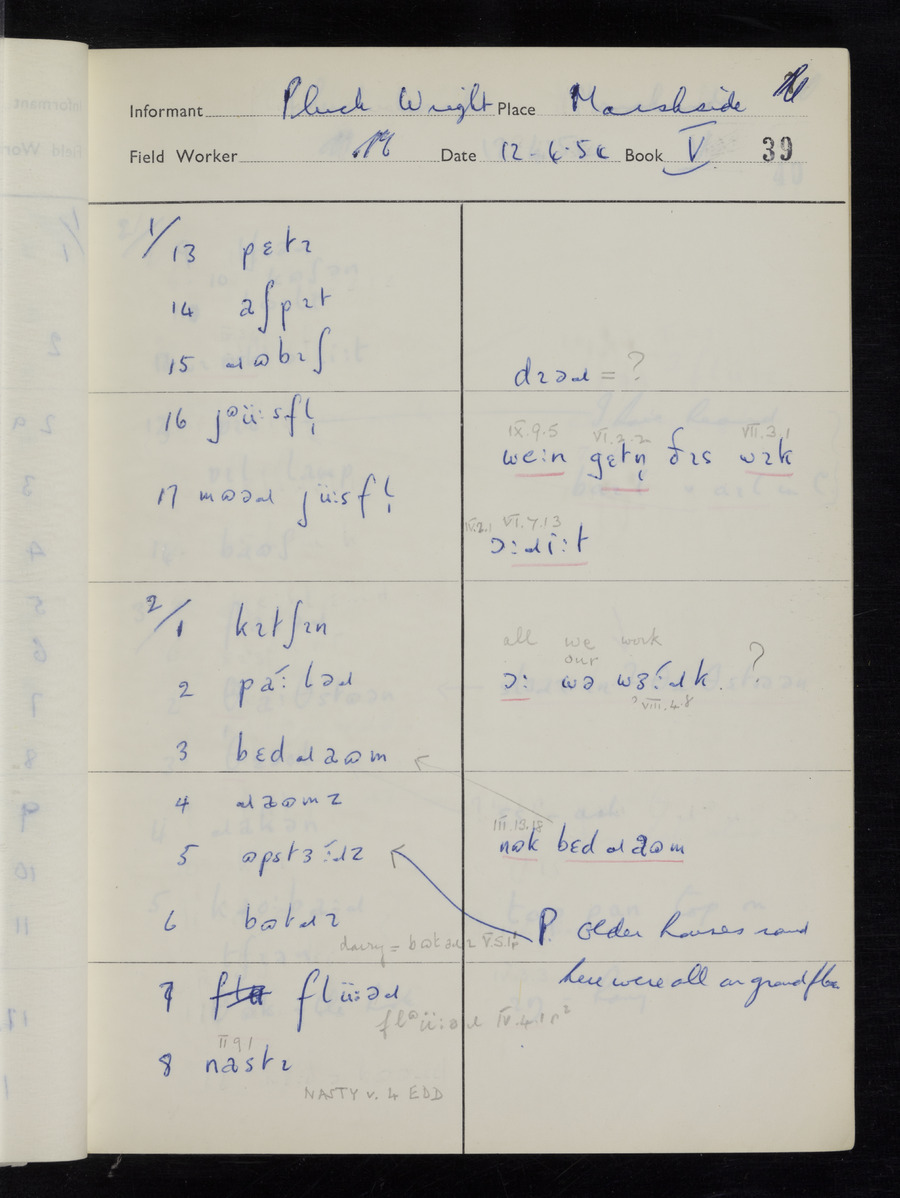 Informant Pluck Wright Place Marshside
Field Worker Date 12-4-54 Book V 39
1/13 pɛtɪ
14 aʃpɪt
15 ɹɷbɪʃ
dɪəɹ = ?
16 jᶷüːsfl̩
IX.9.5 VI.2.2 VII.3.1
weːn gɛtn̩ ðɪs wɪk
17 mɷəɹ jüːsfl̩
IV.2.1 VI.7.13
ɔːɹiːt
2/1 kɪtʃɪn
all we work
our
2 paːləɹ
ɔː wə wɜːɹk. ?
VIII.4.8
3 bɛdɹɷm
4 ɹɷmz
III.13.18
nɷk bɛdɹɷm
5 ɷpstɜːɹz
6 bɷtɹɪ
P. older houses round
dairy = V.5.1
here were all on ground floor
7 flüːəɹ
IV.4.1
II 9 1
8 nastɪ
NASTY v. 4 EDD